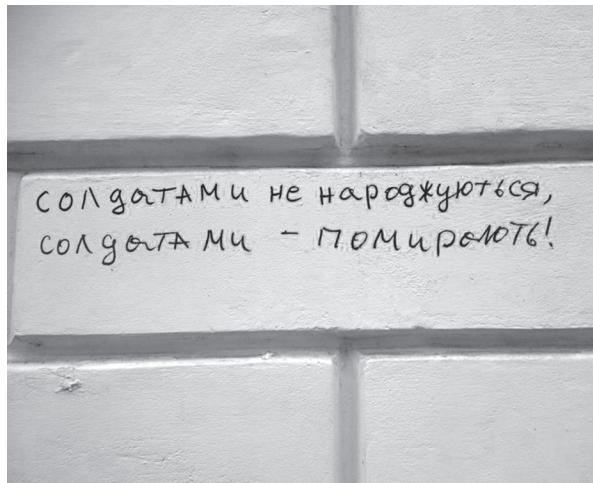 солдатами не народжуються,
солдатами - помирають!